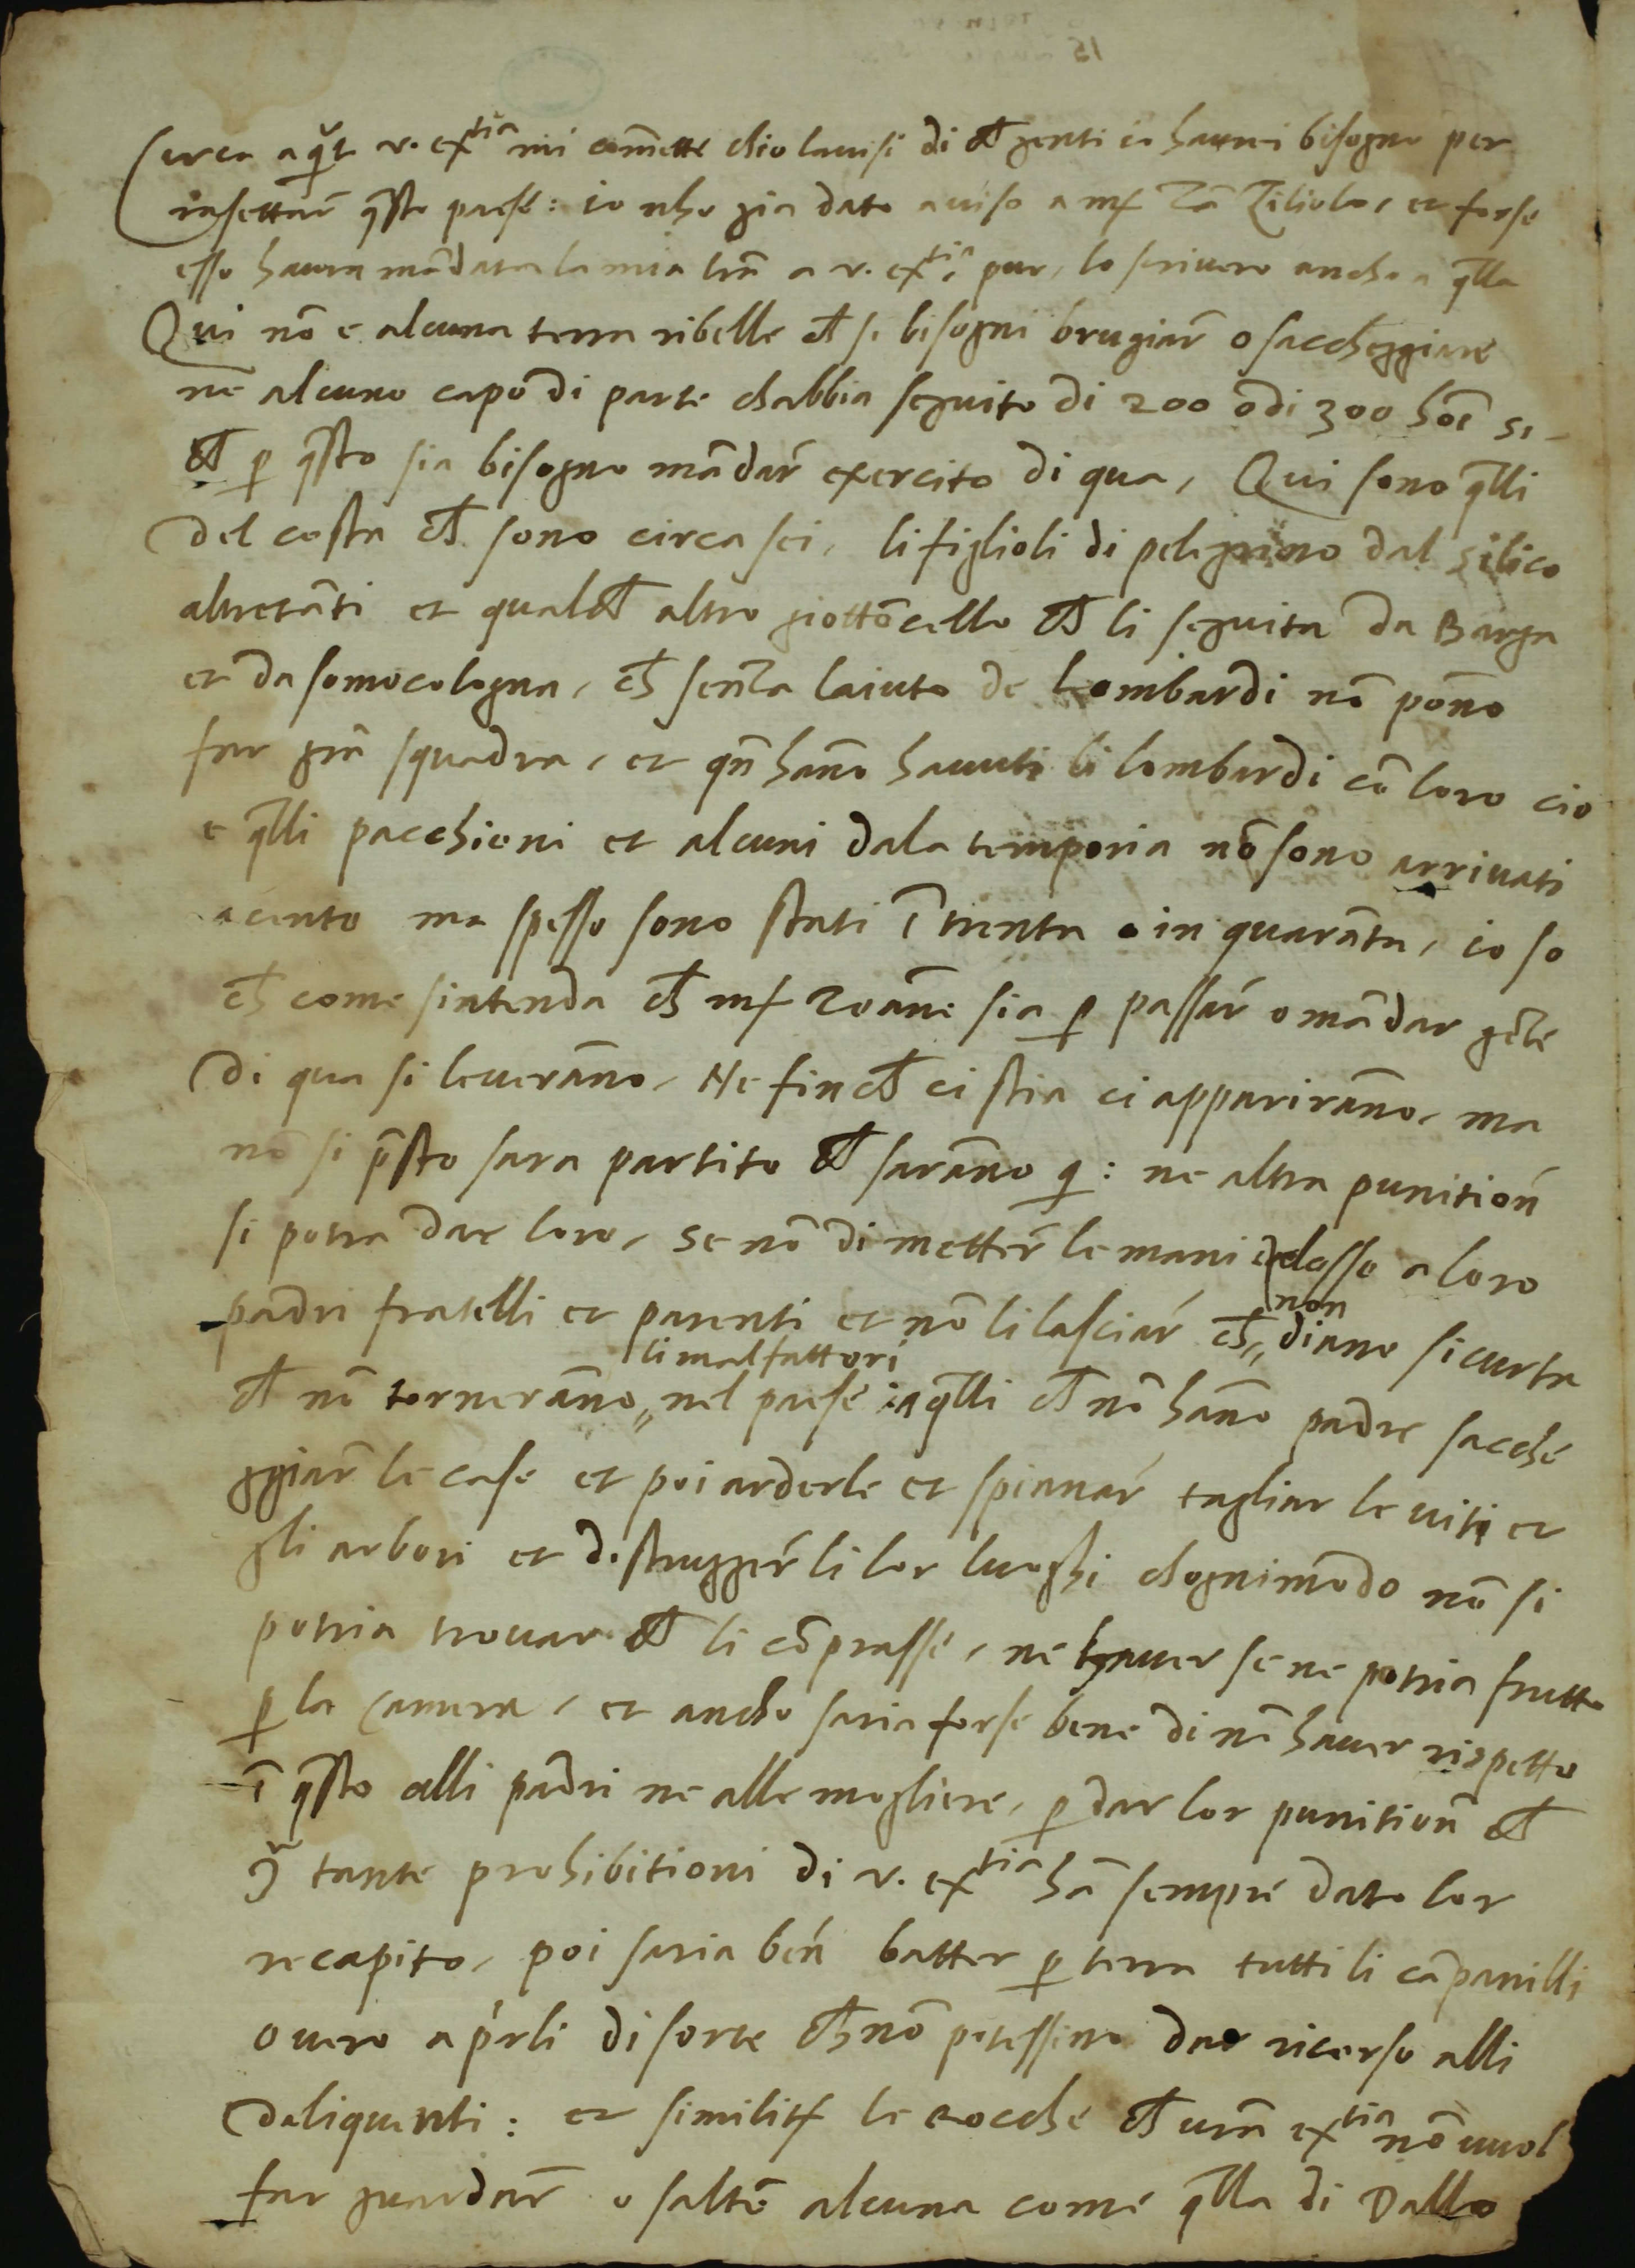 Circa a qto v. extia mi comette chio lavisi di che genti io haurei bisogno per
rasettar qsto paese: io nho gia dato aviso a mr Zā Ziliolo, et forse
esso havra mādata la mia lrā a v. extia pur, lo scrivero ancho a qlla
Qui nō e alcuna terra ribelle ch si bisogni brugiar o saccheggiare
ne alcuno capo di parte chabbia seguito di 200 o di 300 hoī si
ch p qsto sia bisogno mādar exercito di qua, Qui sono qlli
del costa ch sono circa sei, li figlioli di peligrino dal silico
altretāti et qualch altro giottōcello ch li seguita da Barga
et da somocologna, ch senza laiuto de Lombardi nō pōno
far grā squadra, et qn hāno havuti li lombardi cō loro cio
e qlli pacchioni et alcuni dala temporia nō sono arrivati
a cento ma spesso sono stati ī trenta o in quarāta, io so
ch come sintenda ch mr Zoāne sia p passar o mādar gēte
di qua si leverāno, Ne fin ch ci stia ci appariranno, ma
nō si psto sara partito ch sarāno q: ne altra punition
si potra dar loro, se nō di metter le mani adosso a loro
padri fratelli et parenti et nō li lasciar ch non diano sicurta
ch nō tornerāno li malfattori nel paese: a qlli ch nō hāno padre sacche
ggiar le case et poi arderle et spianar tagliar le viti et
gli arbori et distrugger li lor luoghi chognimodo nō si
potria trovar ch li cōprasse, ne haver se ne potria frutto
p la camera, et ancho saria forse bene di nō haver rispetto
ī qsto alli padri ne alle mogliere, p dar lor punition ch
9 tante prohibitioni di v. extia hā sempre dato lor
recapito, poi saria ben batter p terra tutti li cāpanilli
overo aprli di sorte ch nō potessino dar ricorso alli
deliquenti: et similit le rocche ch vra extia nō vuol
far guardar o saltē alcuna come qlla di Dallo